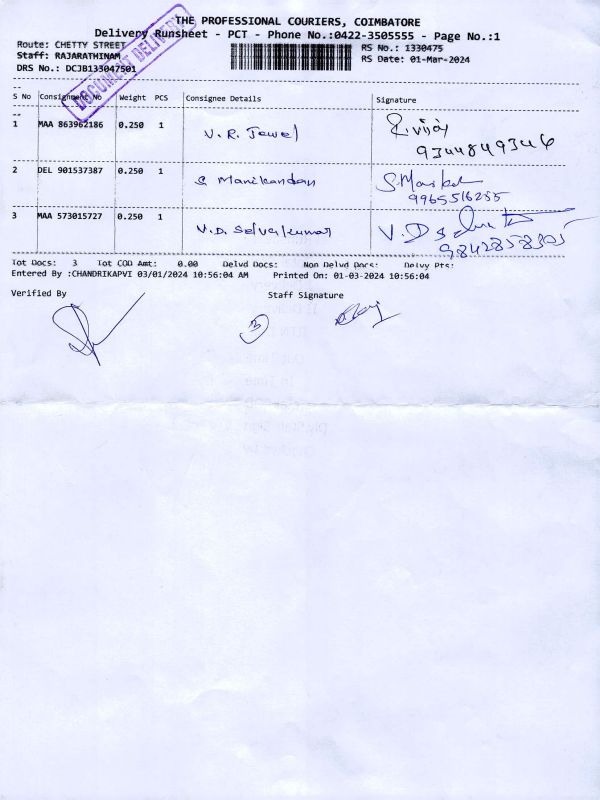 THE PROFESSIONAL COURIERS, COIMBATORE
Delivery Runsheet - PCT - Phone No.:0422-3505555 - Page No.:1
Route: CHETTY STREET
RS No.: 1330475
Staff: RAJARATHINAM
RS Date: 01-Mar-2024
DRS No.: DCJB133047501
DOCUMENT DELIVERY
S No Consignment No Weight PCS Consignee Details Signature
1 MAA 863962186 0.250 1 V. R. Jewel
9344849346
2 DEL 901537387 0.250 1 S Manikandan
9965516255
3 MAA 573015727 0.250 1 V.D. Selvakumar
9842858305
Tot Docs: 3 Tot COD Amt: 0.00 Delvd Docs: Non Delvd Docs: Delvy Pts:
Entered By :CHANDRIKAPVI 03/01/2024 10:56:04 AM Printed On: 01-03-2024 10:56:04
Verified By Staff Signature
3